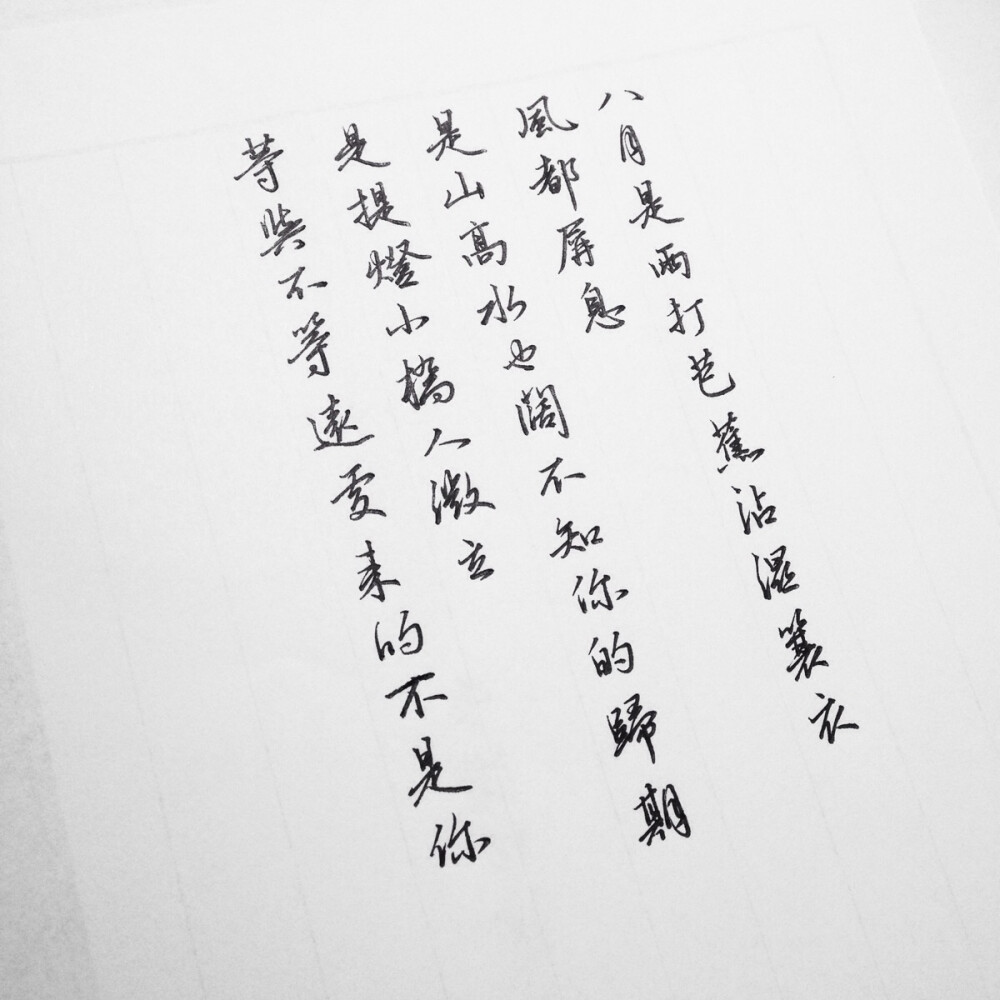 八月是雨打芭蕉沾濕蓑衣
風都屏息
是山高水也闊不知你的歸期
是提燈小橋人微立
等與不等遠處來的不是你